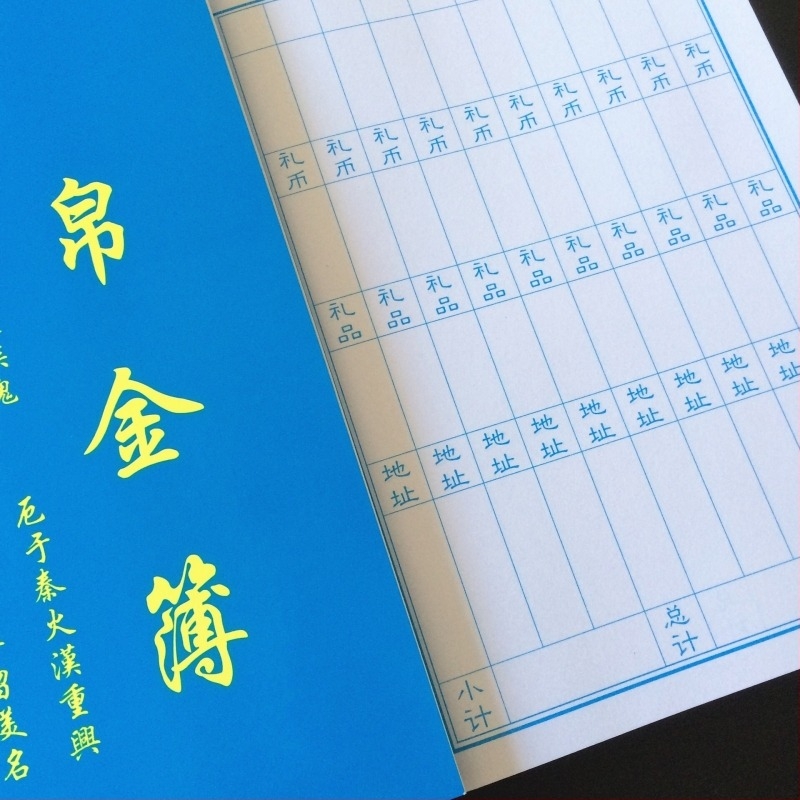 帛金簿
厄于秦火漢重興
留美名
礼币 礼币 礼币 礼币 礼币 礼币 礼币 礼币 礼币 礼币
礼品 礼品 礼品 礼品 礼品 礼品 礼品 礼品 礼品 礼品
地址 地址 地址 地址 地址 地址 地址 地址 地址
总计
小计